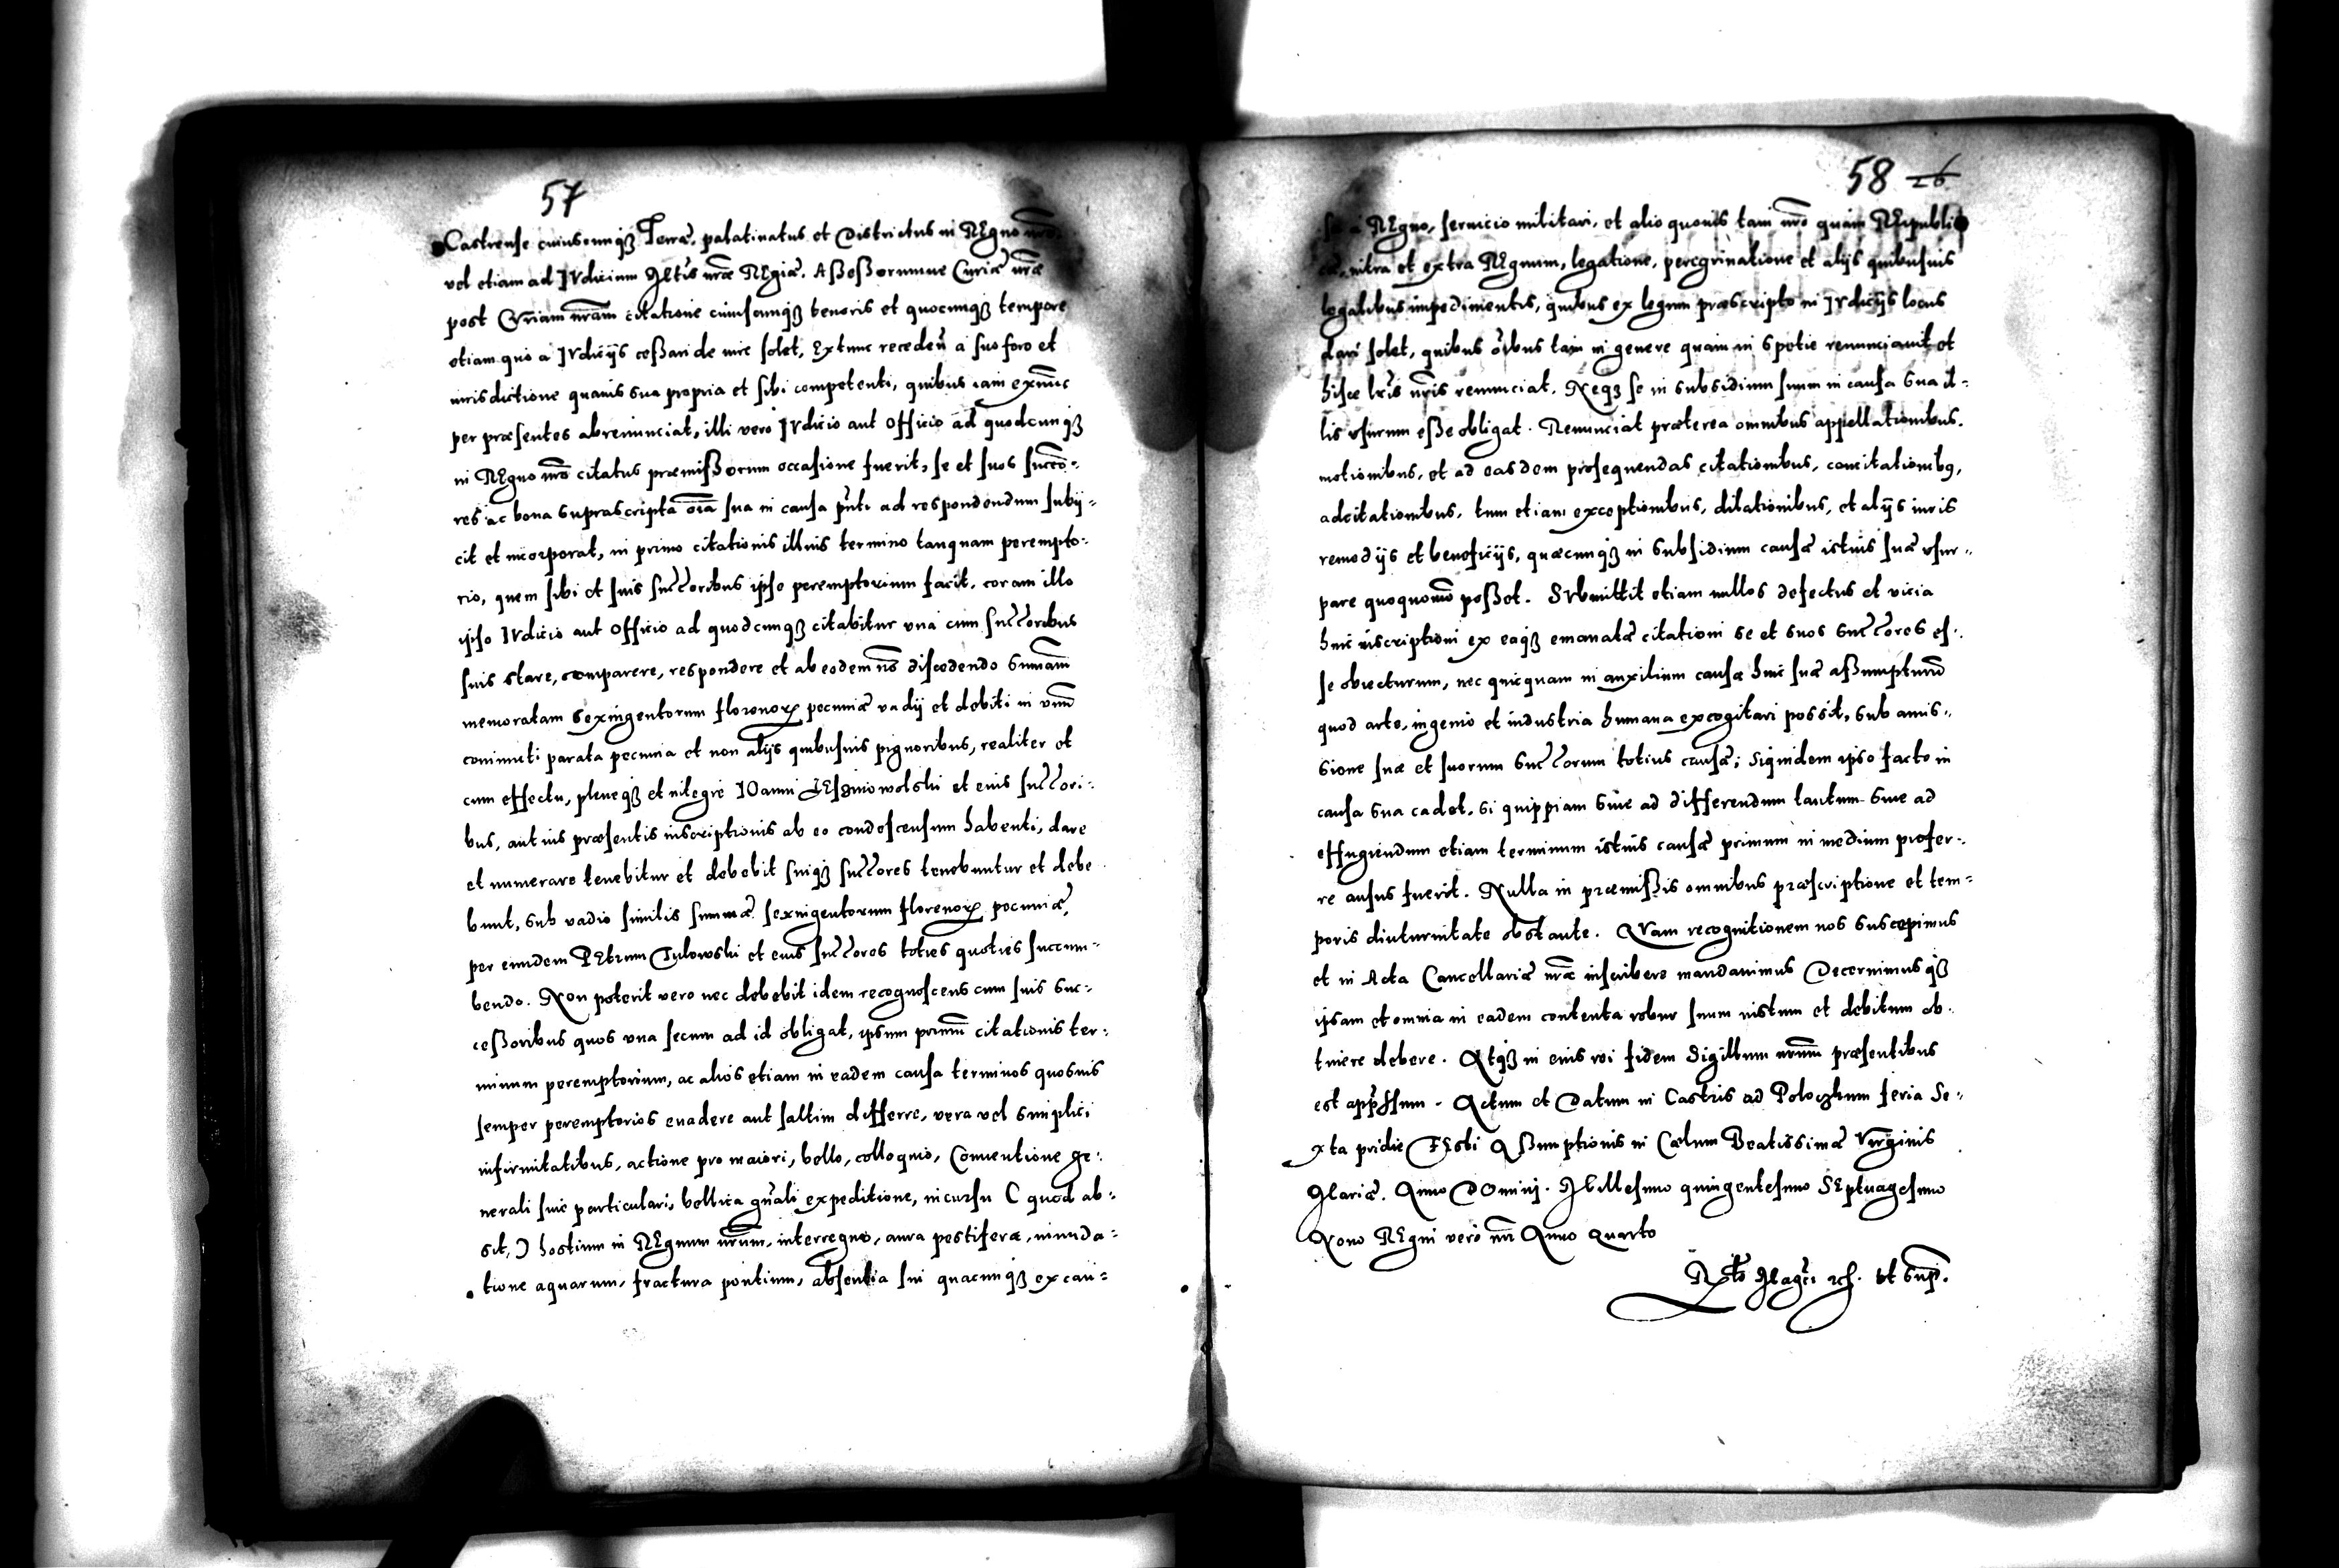 57
Castrense cuiuscunqꝫ Terræ, palatinatus et Districtus in REgno nr̃o,
vel etiam ad IVdicium Mtis nr̃æ REgiæ, Aßeßorumue Curiæ nr̃æ
post CVriam nr̃am citatione cuiuscunqꝫ tenoris et quocunqꝫ tempore
etiam quo a IVdicijs ceßari de iure solet, Extunc receden̄ a suo foro et
iurisdictione quauis sua propria et sibi competenti, quibus iam exnūc
per præsentes abrenunciat, illi vero IVdicio aut Officio ad quodcunqꝫ
in REgno nr̃o citatus præmißorum occasione fuerit, se et suos succeo-
res ac bona suprascripta oīa sua in causa pn̄ti ad respondendum subij-
cit et incorporat, in primo citationis illius termino tanquam perempto-
rio, quem sibi et suis succoribus ipse peremptorium facit, coram illo
ipso IVdicio aut Officio ad quodcunqꝫ citabitur vna cum succoribus
suis stare, comparere, respondere et ab eodem nō discedendo summam
memoratam sexingentorum florenoꝝ pecuniæ vadij et debiti in vnū
coniuncti parata pecunia et non alijs quibusuis pignoribus, realiter et
cum effectu, pleneqꝫ et integre IOanni LEsniowolski et eius succori-
bus, aut ius præsentis inscriptionis ab eo condescensum habenti, dare
et numerare tenebitur et debebit suiqꝫ succores tenebuntur et debe
bunt, sub vadio similis summæ sexingentorum florenoꝝ pecuniæ,
per eundem PEtrum Culowski et eius succores toties quoties succum-
bendo. Non poterit vero nec debebit idem recognoscens cum suis suc-
ceßoribus quos vna secum ad id obligat, ipsum primū citationis ter-
minum peremptorium, ac alios etiam in eadem causa terminos quosuis
semper peremptorios euadere aut saltim differre, vera vel simplici
infirmitatibus, actione pro maiori, bello, colloquio, Conuentione ge-
nerali siue particulari, bellica gn̄ali expeditione, incursu ( quod ab-
sit, ) hostium in REgnum nr̃um, interregno, aura pestifera, inunda-
tione aquarum, fractura pontium, absentia sui quacunqꝫ ex cau-
58 26
sa a REgno, seruicio militari, et alio quouis tam nr̃o quam REipubli
cæ, intra et extra REgnum, legatione, peregrinatione et alijs quibusuis
legalibus impedimentis, quibus ex legum præscripto in IVdicijs locus
dari solet, quibus oībus tam in genere quam in spetie renunciauit et
hisce lr̃is nr̃is renunciat. Neqꝫ se in subsidium suum in causa sua il-
lis vsurum eße obligat. Renunciat præterea omnibus appellationibus.
motionibus, et ad easdem prosequendas citationibus, concitationibꝯ,
adcitationibus, tum etiam exceptionibus, dilationibus, et alijs iuris
remedijs et beneficijs, quæcunqꝫ in subsidium causæ istius suæ vsur-
pare quoquomō poßet. SVbmittit etiam nullos defectus et vicia
huic inscriptioni ex eaqꝫ emanatæ citationi se et suos succores es-
se obiecturum, nec quicquam in auxilium causæ huic suæ aßumpturū
quod arte, ingenio et industria humana excogitari possit, sub amis-
sione suæ et suorum succorum totius causæ; siquidem ipso facto in
causa sua cadet, si quippiam siue ad differendum tantum siue ad
effugiendum etiam terminum istius causæ primum in medium profer-
re ausus fuerit. Nulla in præmißis omnibus præscriptione et tem-
poris diuturnitate obstante. QVam recognitionem nos suscepimus
et in Acta Cancellariæ nr̃æ inscribere mandauimus Decernimusqꝫ
ipsam et omnia in eadem contenta robur suum iustum et debitum ob-
tinere debere. Atqꝫ in eius rei fidem Sigillum nr̃um præsentibus
est app̄ssum. Actum et Datum in Castris ad Poloczkum feria Se-
xta pridie FEsti Aßumptionis in Cœlum Beatissimæ Virginis
Mariæ. Anno DOmini. Millesimo quingentesimo SEptuagesimo
Nono REgni vero nr̃i Anno Quarto
Rtō Magci ꝛcs. vt supr̄.